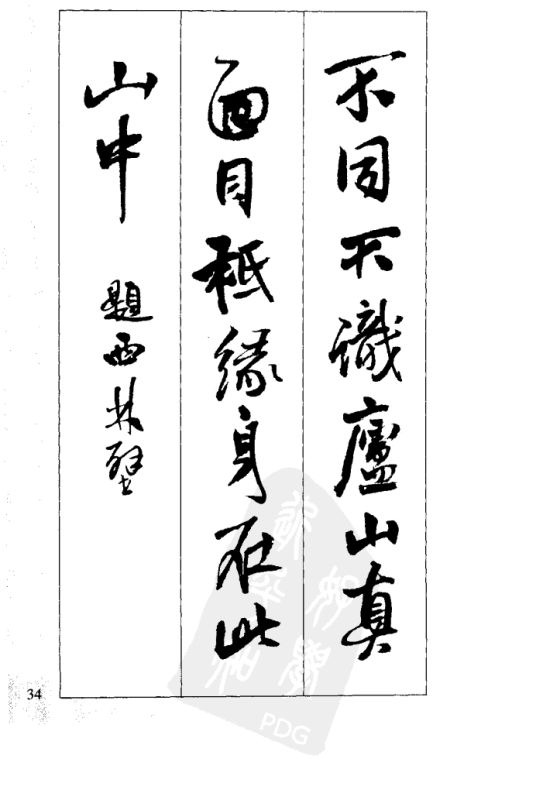 不同不識廬山真
面目祗緣身在此
山中
題西林壁
34
PDG